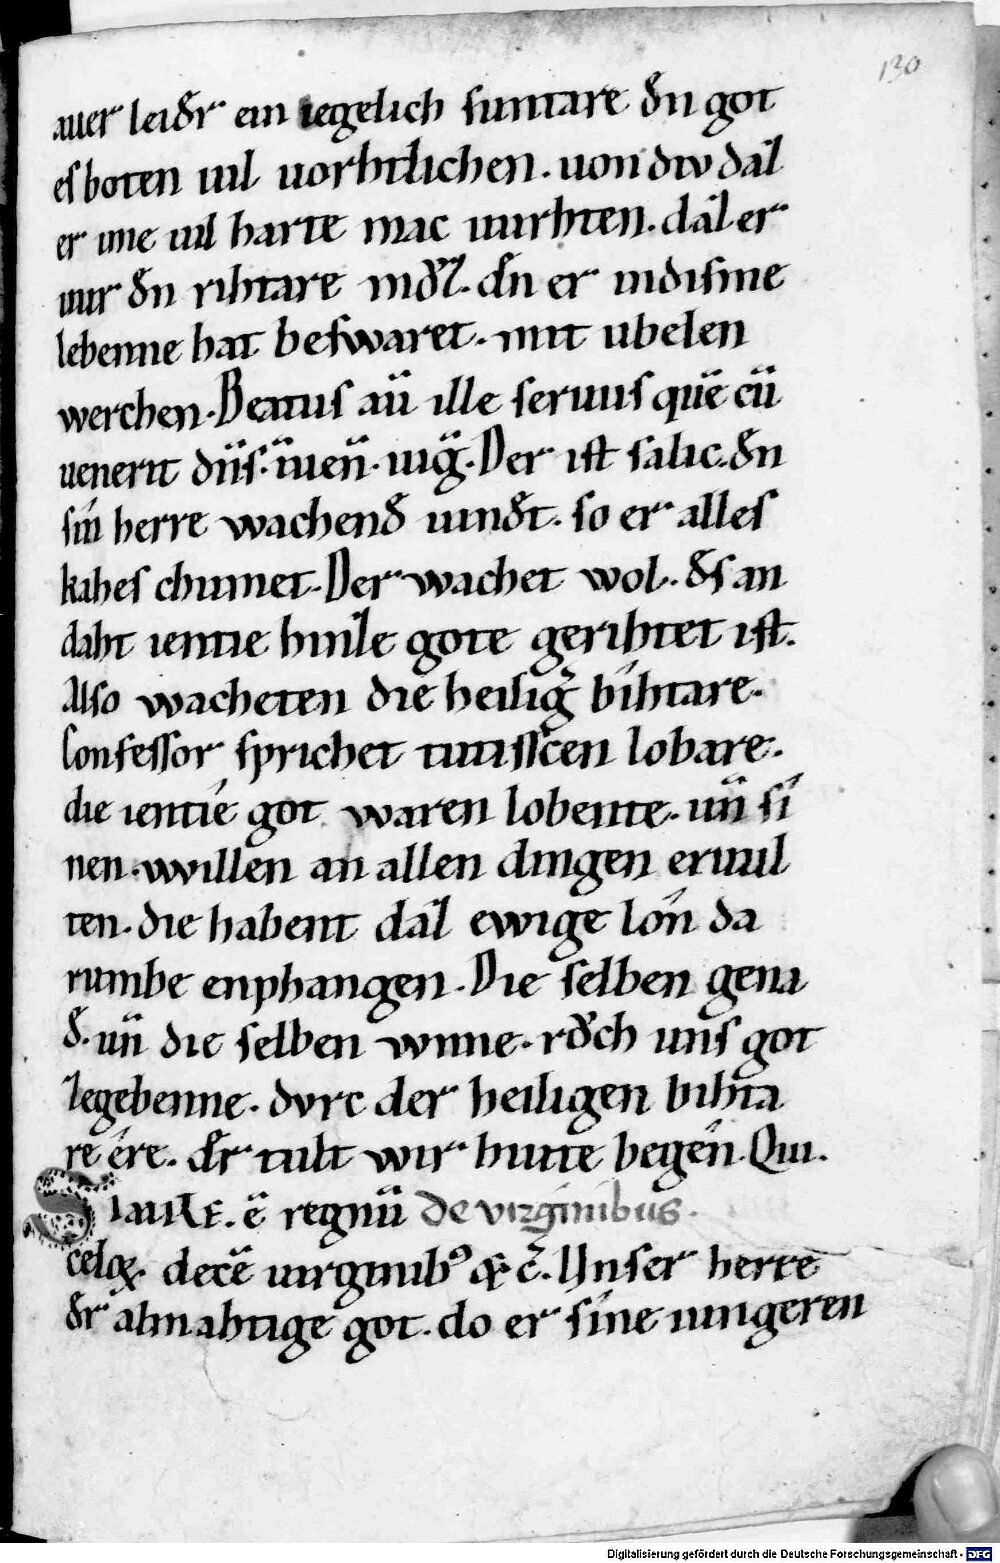 130
auer leiđr ein iegelich suntare đn got
es boten uil uorhtlichen. uon diu daz
er ime uil harte mac uurhten. daz er
uur đn rihtare mđz. đn er in disme
lebenne hat beswaret. mit ubelen
werchen. Beatus aū ille seruus quē cū
uenerit dn̄s. inuen. uig. Der ist salic. đn
sin herre wachenđ uindet. so er alles
kahes chumet. Der wachet wol. đs an
daht ientie hinze gote gerihtet ist.
Also wacheten die heilig bihtare.
Confessor sprichet tutisscen lobare.
die ientie got waren lobente. un̄ si
nen willen an allen dingen eruul
ten. die habent daz ewige lon da
rumbe enphangen. Die selben gena
đ. un̄ die selben wnne. rđch uns got
zegebenne. durc der heiligen bihta
re ere. đr tult wir hiute begen. Qui.
SIMILE. ē regnū de virginibus.
celoꝝ. decē uirginib⁹ ⁊ c̄. Unser herre
đr almahtige got. do er sine iungeren
Digitalisierung gefördert durch die Deutsche Forschungsgemeinschaft - DFG